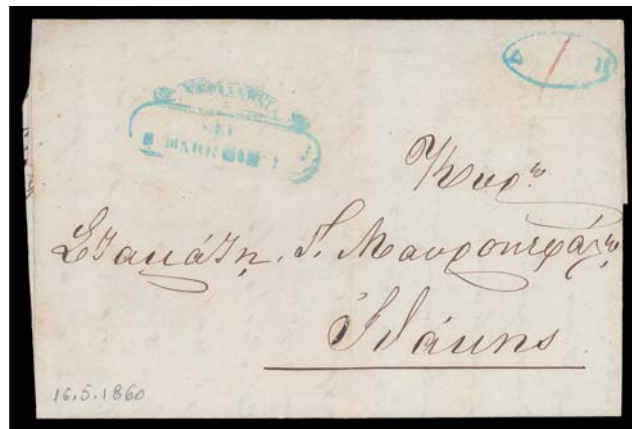 Κυρ.ῳ
Σταμάτῃ. Γ. Μαυροκεφάλῳ,
Ἰθάκης
16.5.1860